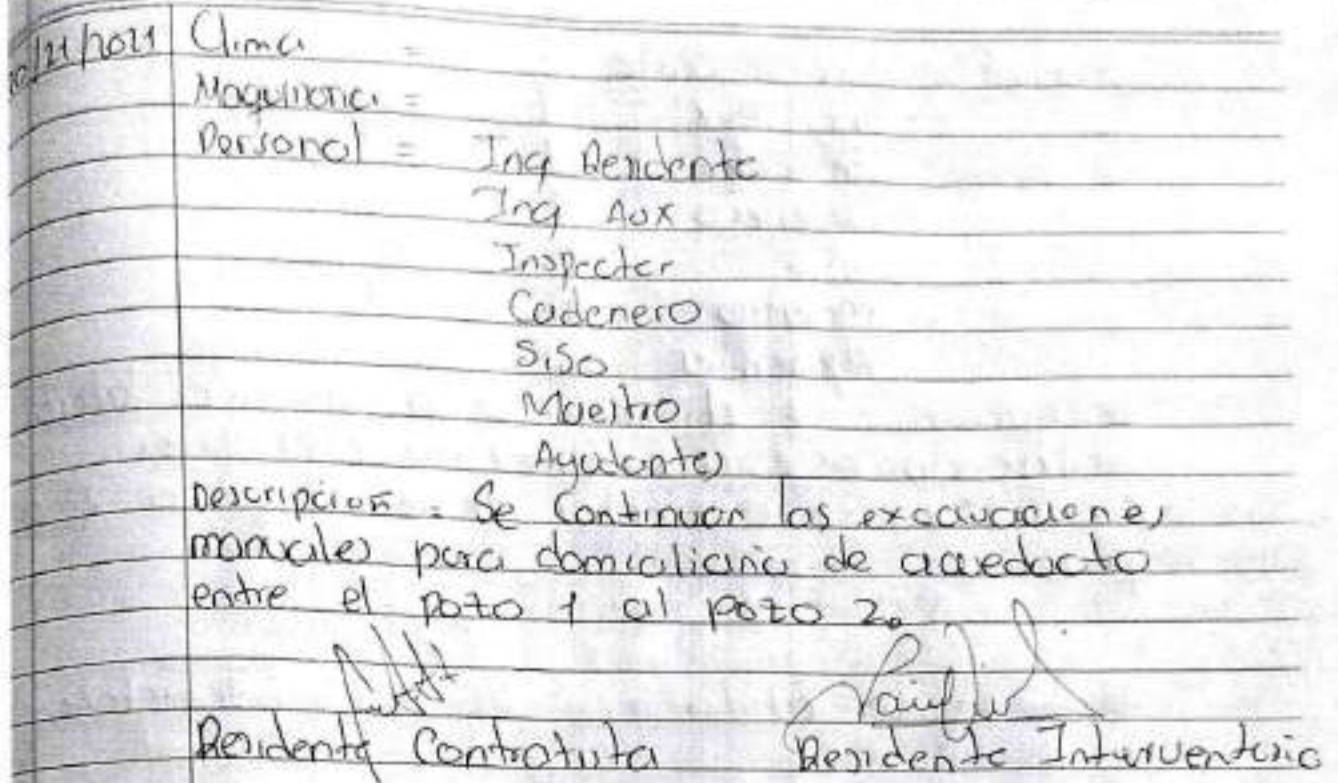 Clima =
Maquinaria =
Personal = Ing Residente
Ing Aux
Inspector
Cadenero
S.iSo
Maestro
Ayudantes
Descripción = Se Continuan las excavaciones
manuales para domiciliaria de acueducto
entre el pozo 1 al pozo 2.
Residente Contratista Residente Interventoria